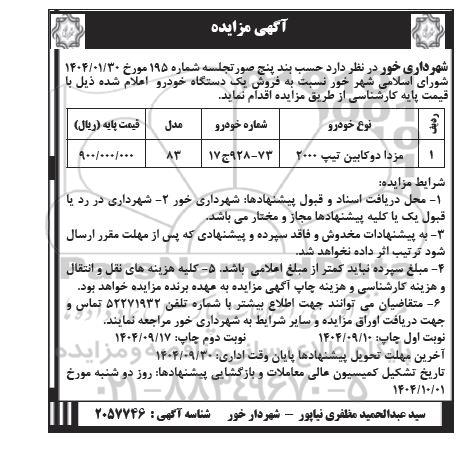 آگهی مزایده
شهرداری خور در نظر دارد حسب بند پنج صورتجلسه شماره ۱۹۵ مورخ ۱۴۰۴/۰۱/۳۰
شورای اسلامی شهر خور نسبت به فروش یک دستگاه خودرو اعلام شده ذیل با
قیمت پایه کارشناسی از طریق مزایده اقدام نماید.
ردیف نوع خودرو شماره خودرو مدل قیمت پایه (ریال)
۱ مزدا دوکابین تیپ ۲۰۰۰ ۷۳-۹۲۸ج۱۷ ۸۳ ۹۰۰/۰۰۰/۰۰۰
شرایط مزایده:
۱- محل دریافت اسناد و قبول پیشنهادها: شهرداری خور ۲- شهرداری در رد یا
قبول یک یا کلیه پیشنهادها مجاز و مختار می باشد.
۳- به پیشنهادات مخدوش و فاقد سپرده و پیشنهادی که پس از مهلت مقرر ارسال
شود ترتیب اثر داده نخواهد شد.
۴- مبلغ سپرده نباید کمتر از مبلغ اعلامی باشد. ۵- کلیه هزینه های نقل و انتقال
و هزینه کارشناسی و هزینه چاپ آگهی مزایده به عهده برنده مزایده خواهد بود.
۶- متقاضیان می توانند جهت اطلاع بیشتر با شماره تلفن ۵۲۲۷۱۹۳۲ تماس و
جهت دریافت اوراق مزایده و سایر شرایط به شهرداری خور مراجعه نمایند.
نوبت اول چاپ: ۱۴۰۴/۰۹/۱۰ نوبت دوم چاپ: ۱۴۰۴/۰۹/۱۷
آخرین مهلت تحویل پیشنهادها پایان وقت اداری: ۱۴۰۴/۰۹/۳۰
تاریخ تشکیل کمیسیون عالی معاملات و بازگشایی پیشنهادها: روز دو شنبه مورخ
۱۴۰۴/۱۰/۰۱
سید عبدالحمید مظفری نیاپور – شهردار خور شناسه آگهی: ۲۰۵۷۷۴۶
۰۲۱-۸۸۳۴۹۶۷۰-۵